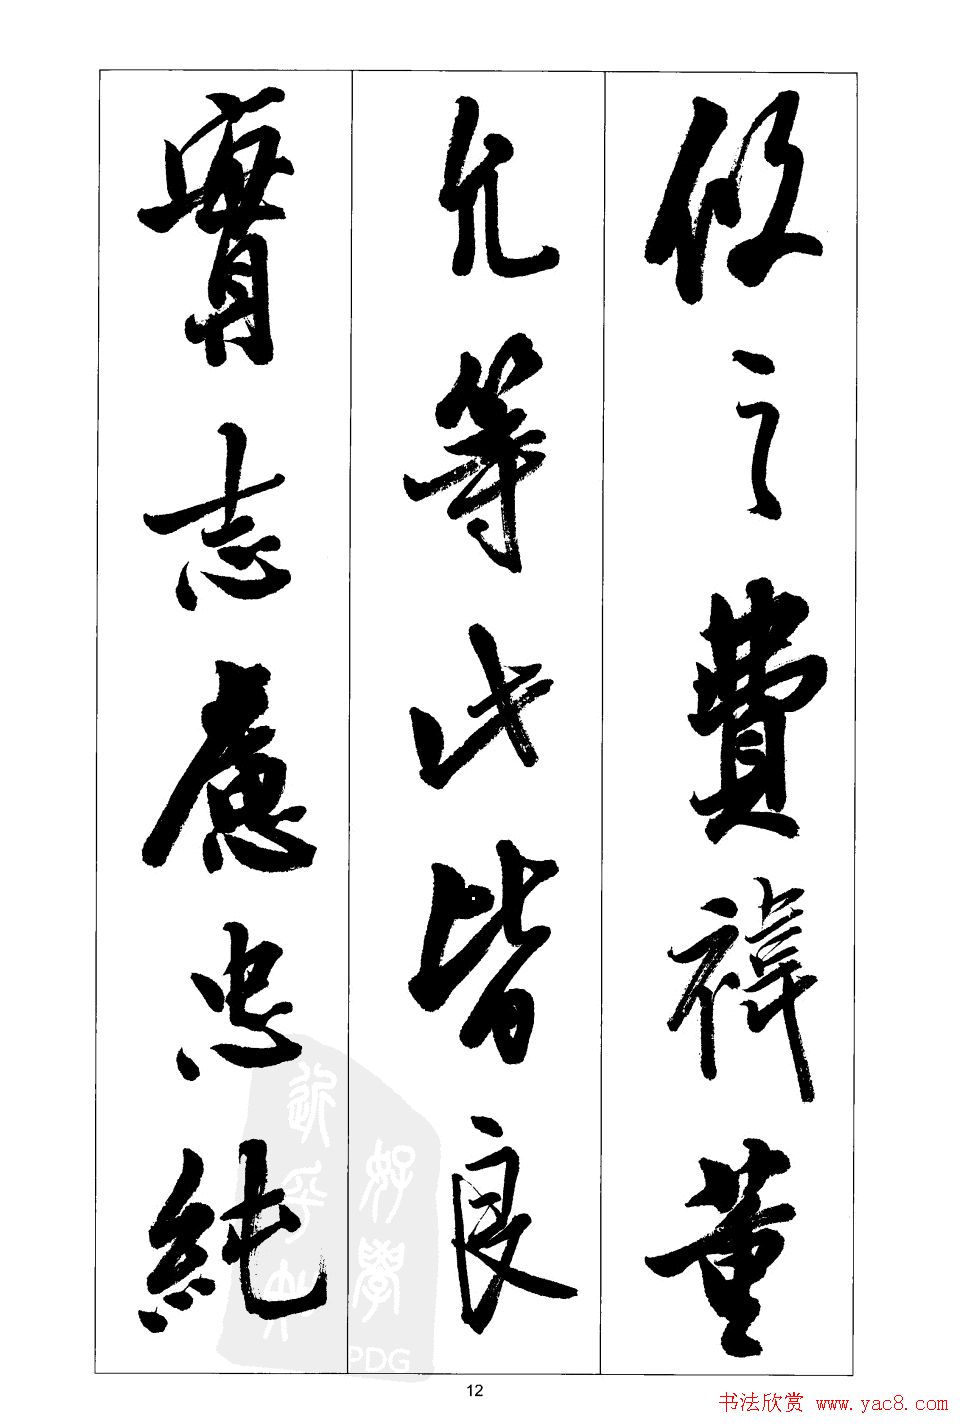 攸之費禕董
允等此皆良
實志慮忠純
好學
近乎知
PDG
12
书法欣赏 www.yac8.com